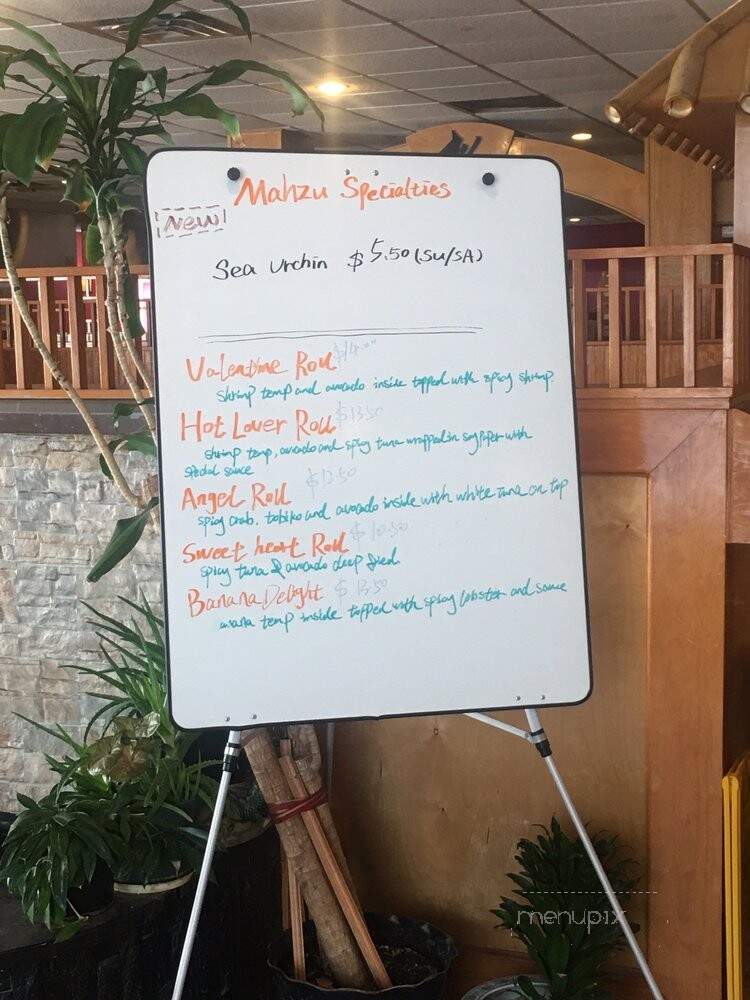 Mahzu Specialties
New
Sea Urchin $5.50 (SU/SA)
Valentine Roll $14.00
shrimp temp and avocado inside topped with spicy shrimp.
Hot Lover Roll $13.50
shrimp temp, avocado and spicy tuna wrapped in soy paper with
special sauce
Angel Roll $12.50
spicy crab, tobiko and avocado inside with white tuna on top
Sweet heart Roll $10.50
spicy tuna & avocado deep fried
Banana Delight $13.50
temp inside topped with spicy lobster and sauce
menupix